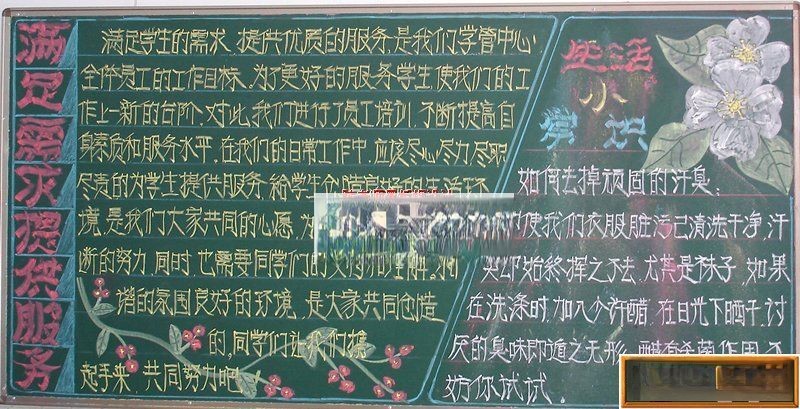 满足需求提供服务
满足学生的需求，提供优质的服务，是我们学管中心
全体员工的工作目标。为了更好的服务学生，使我们的工
作上一新的台阶，对此，我们进行了员工培训，不断提高自
身素质和服务水平，在我们的日常工作中，应该尽心尽力尽职
尽责的为学生提供服务，给学生
境，是我们大家共同的心愿，为
断的努力，同时，也需要同学们的
谐的氛围良好的环境，是大家共同创造
的，同学们让我们携
起手来，共同努力吧！
生活
小
常识
如何去掉顽固的汗臭：
使我们衣服脏污己清洗干净，汗
臭却始终挥之不去，尤其是袜子，如果
在洗涤时，加入少许醋，在日光下晒干，讨
厌的臭味即遁之无形，
妨你试试．